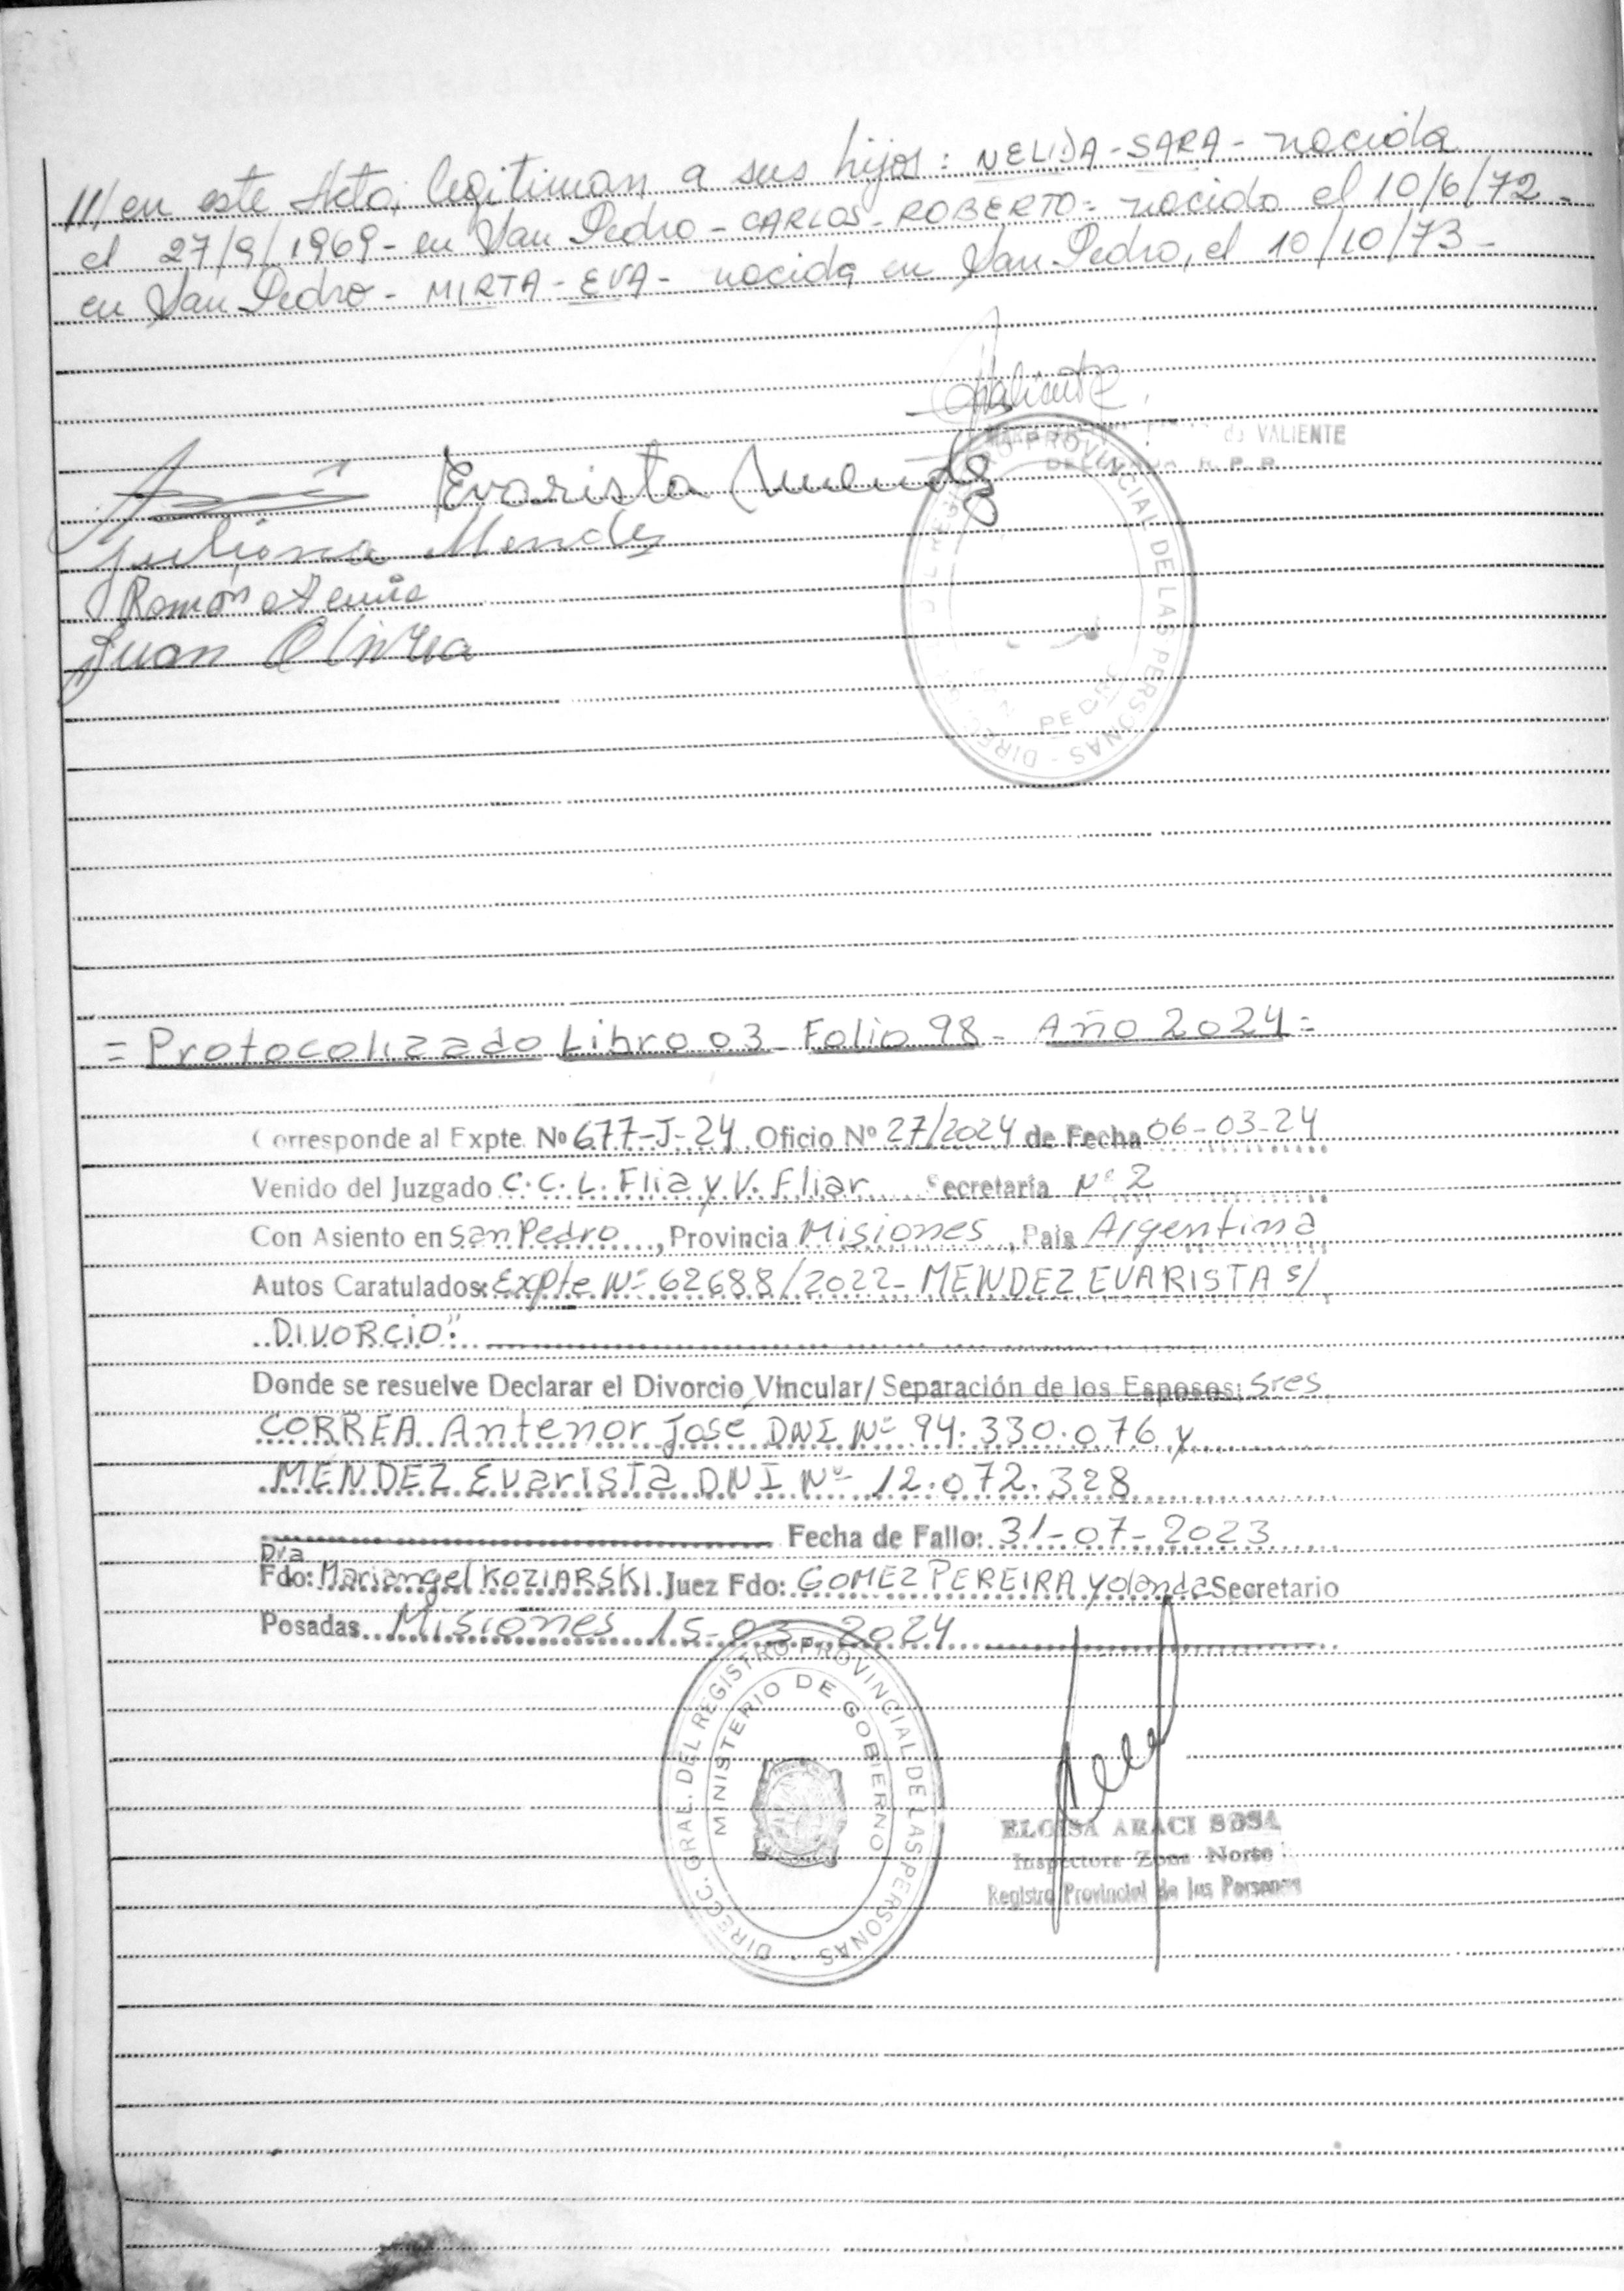 11/ en este Acto, legitiman a sus hijos: NELIDA-SARA- nacida
el 27/9/1969- en San Pedro- CARLOS- ROBERTO- nacido el 10/6/72-
en San Pedro- MIRTA-EVA- nacida en San Pedro, el 10/10/73-
de VALIENTE
DELEGADA R. P. P.
Evarista Mendez
Juliana Mendes
Ramón
Juan Olivera
REGISTRO PROVINCIAL DE LAS PERSONAS - DIRECC
PEDRO
= Protocolizado Libro 03 - Folio 98 - Año 2024 =
Corresponde al Expte. Nº 677-J-24 Oficio Nº 27/2024 de Fecha 06-03-24
Venido del Juzgado C.C.L. Flia y V. Fliar Secretaría Nº 2
Con Asiento en San Pedro, Provincia Misiones, País Argentina
Autos Caratulados: Expte Nº 62688/2022- MENDEZ EVARISTA s/
DIVORCIO".
Donde se resuelve Declarar el Divorcio Vincular/ Separación de los Esposos: Sres
CORREA Antenor José DNI Nº 94.330.076 y
MENDEZ Evarista DNI Nº 12.072.328
Fecha de Fallo: 31-07-2023
Dra
Fdo: Mariangel KOZIARSKI Juez Fdo: GOMEZ PEREIRA Yolanda Secretario
Posadas Misiones 15-03-2024
DIRECC. GRAL. DEL REGISTRO PROVINCIAL DE LAS PERSONAS
MINISTERIO DE GOBIERNO
ELOISA ARACI SOSA
Inspectora Zona Norte
Registro Provincial de las Personas